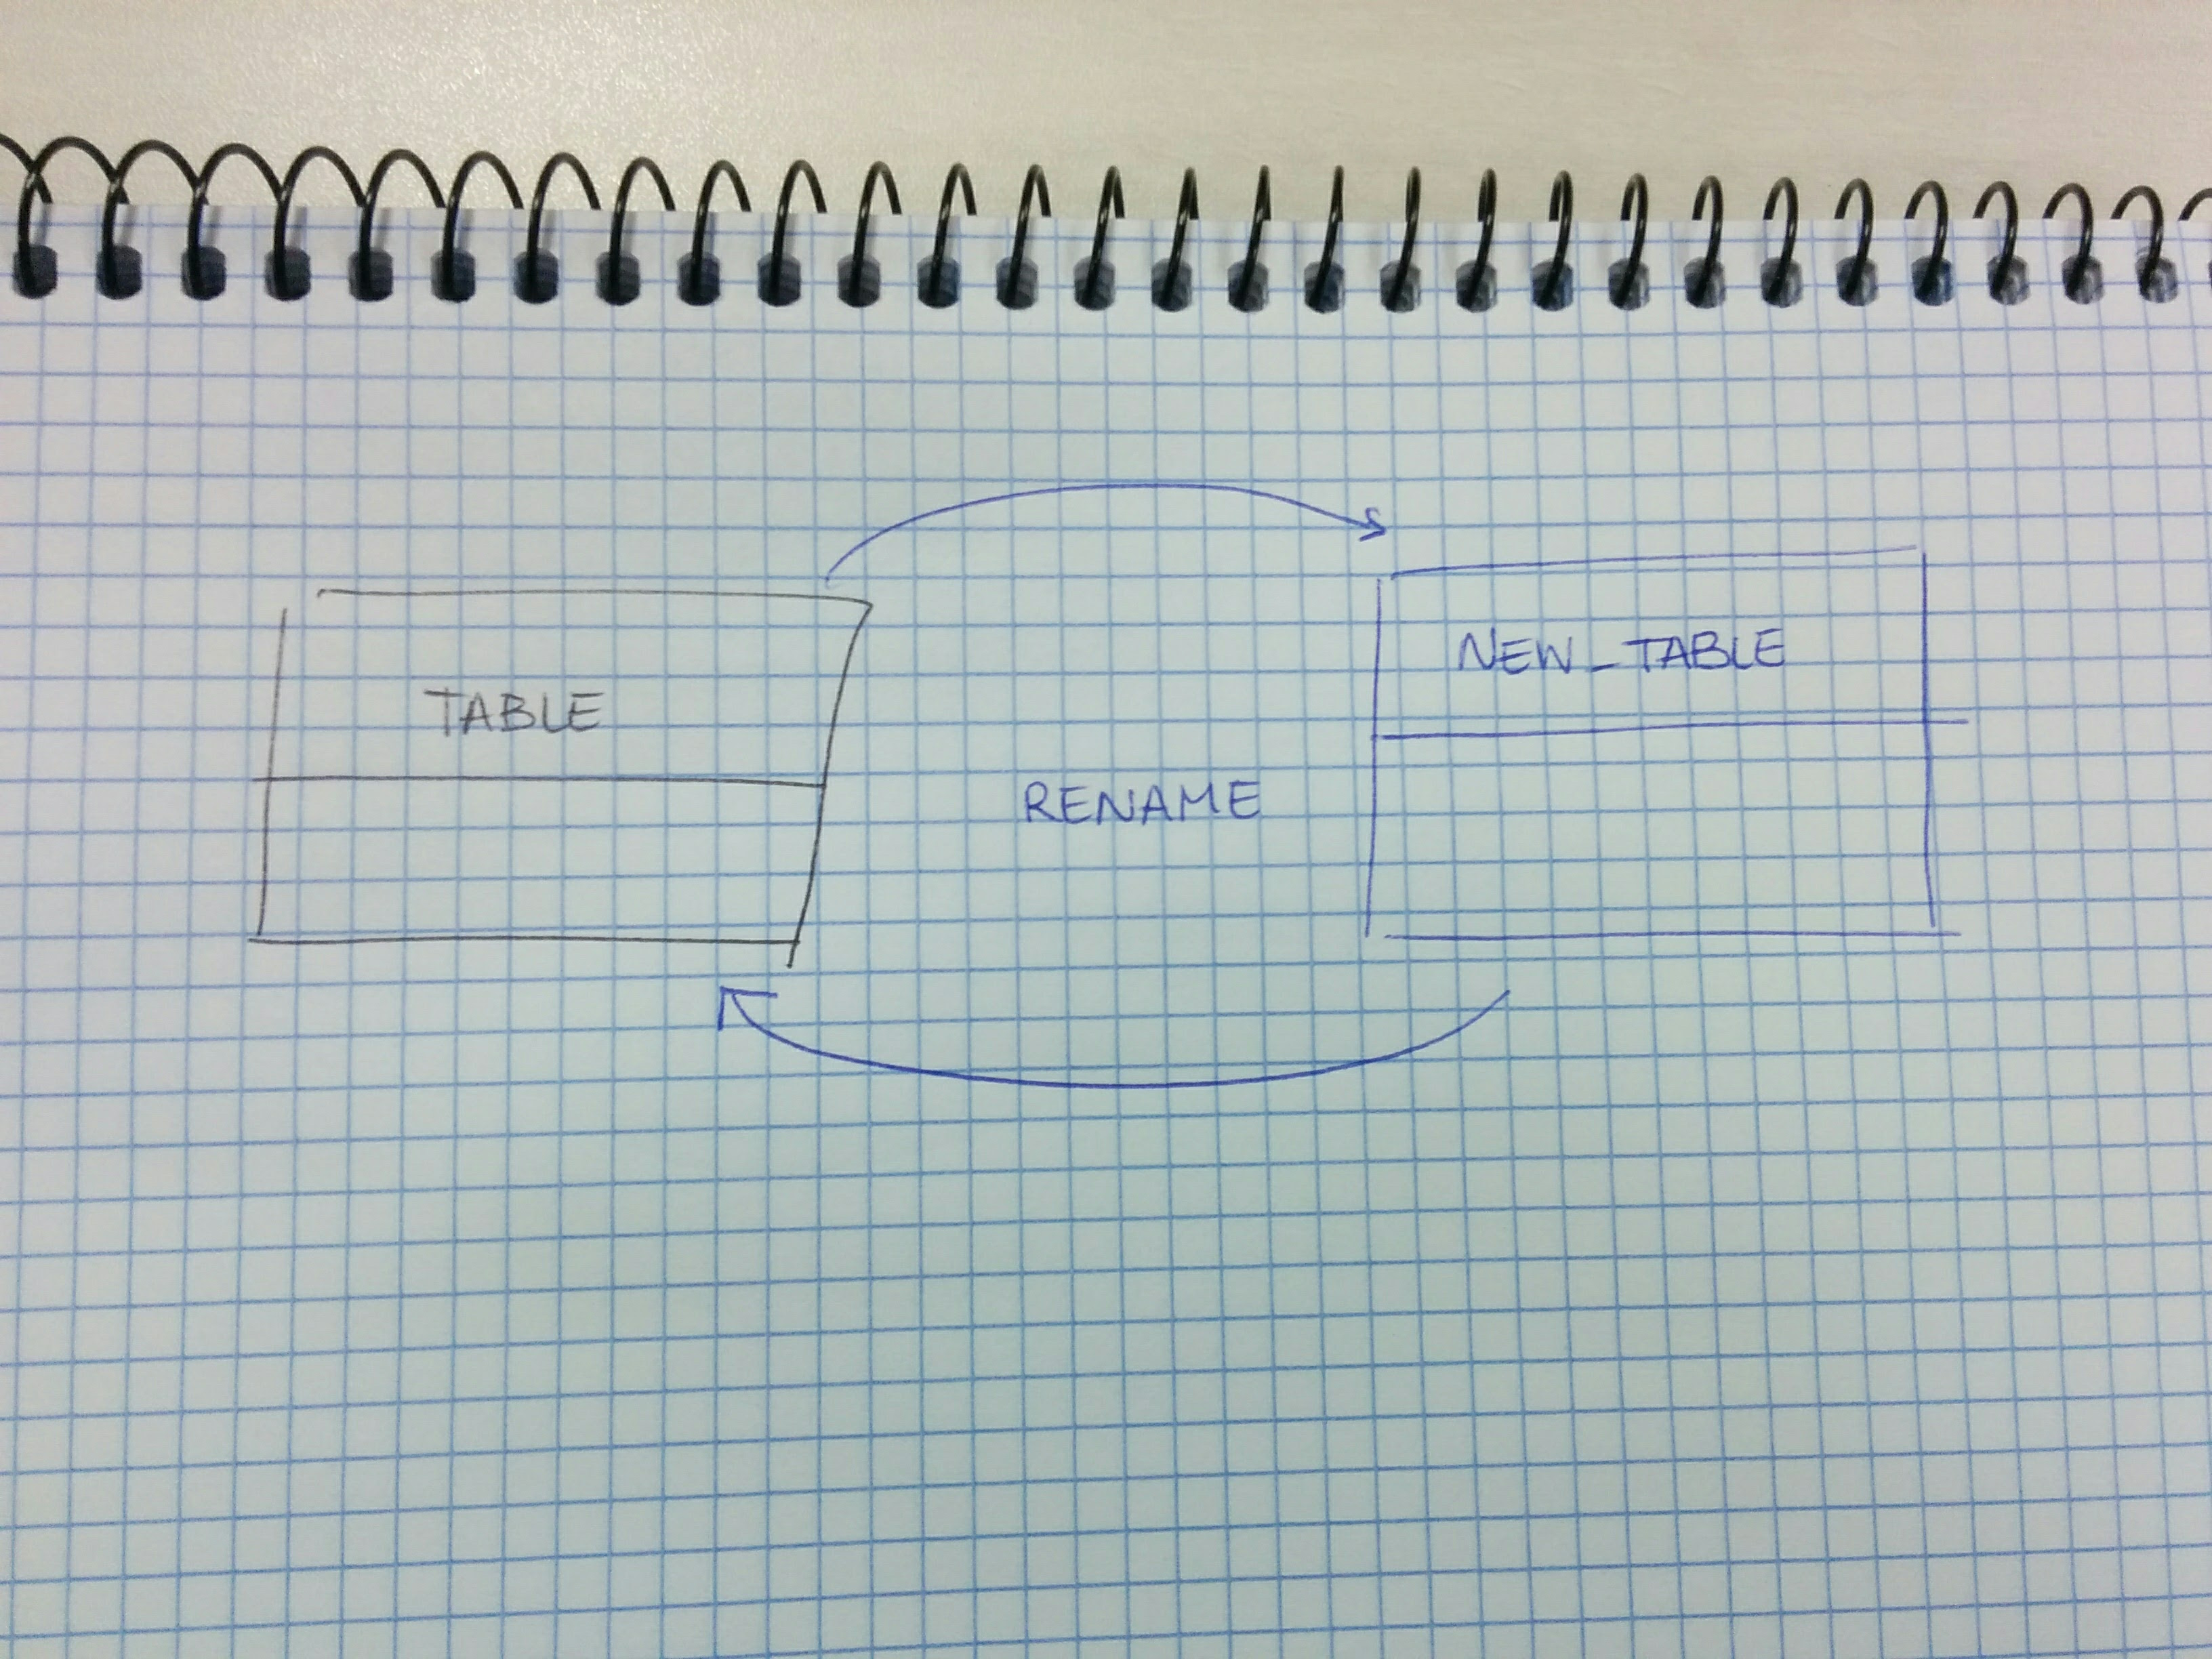 TABLE
RENAME
NEW_TABLE